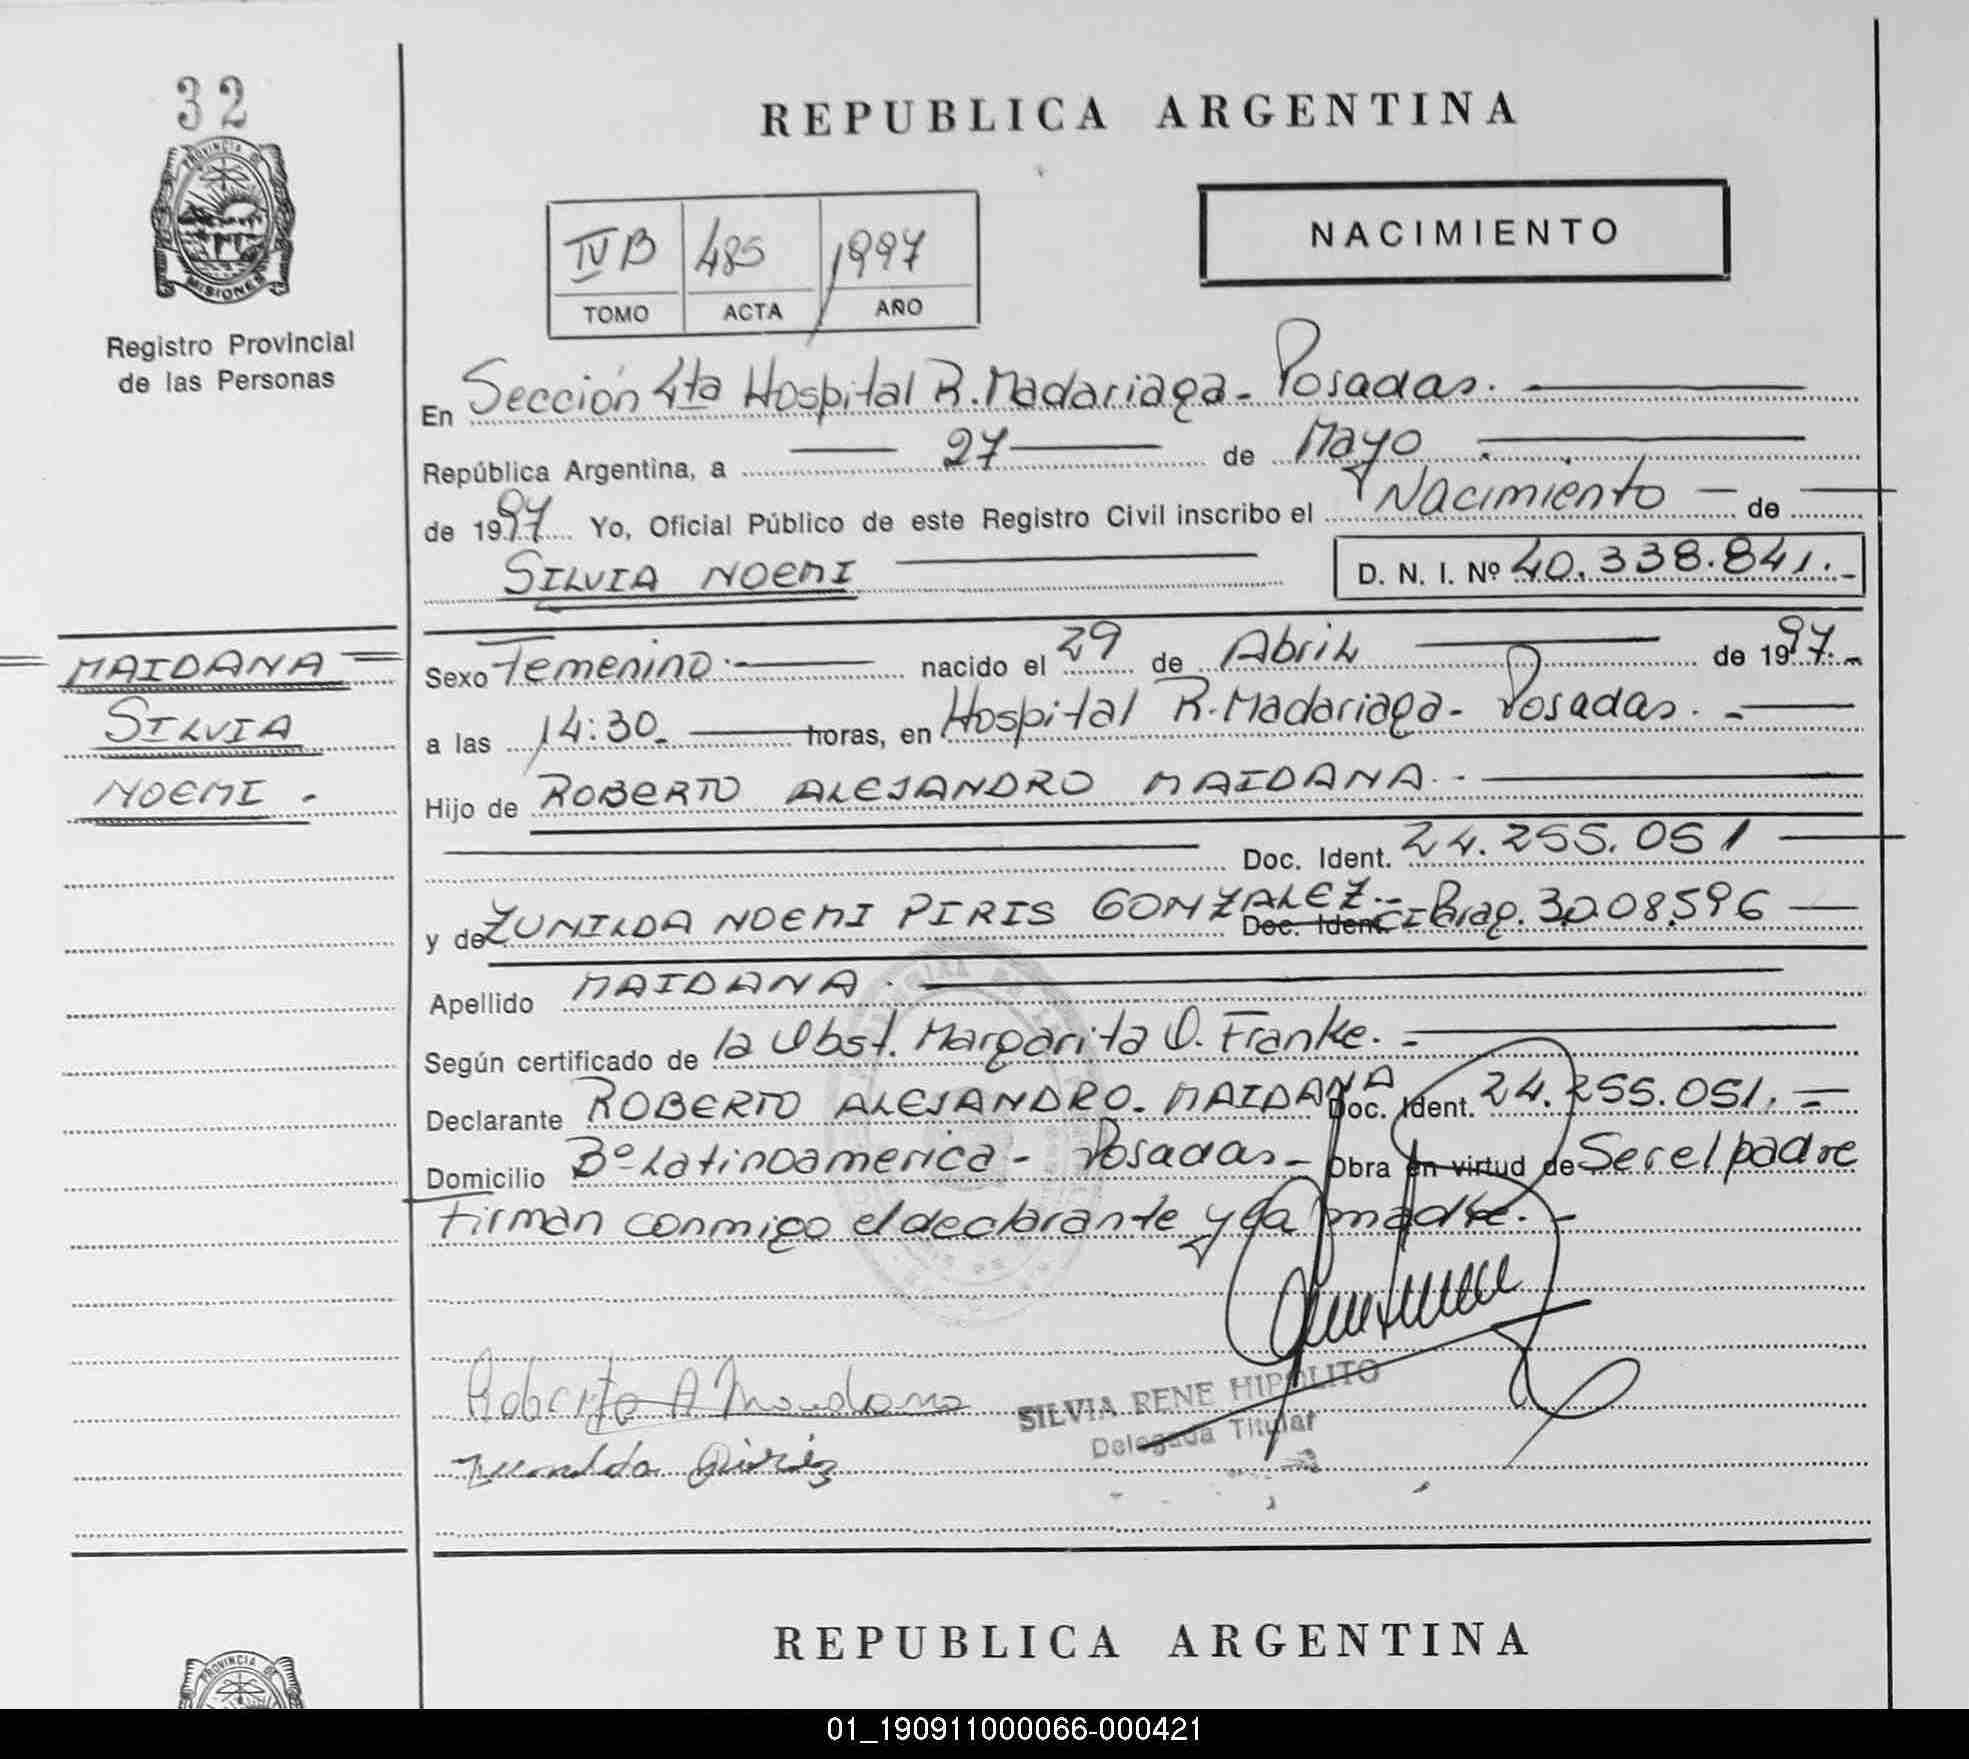 32
PROVINCIA DE
MISIONES
Registro Provincial
de las Personas
REPUBLICA ARGENTINA
NACIMIENTO
IV B 485 1997
TOMO ACTA AÑO
En Sección 4ta Hospital R. Madariaga - Posadas.
República Argentina, a 27 de Mayo
de 1997 Yo, Oficial Público de este Registro Civil inscribo el Nacimiento de
SILVIA NOEMI D. N. I. Nº 40.338.841.-
MAIDANA
SILVIA
NOEMI.
Sexo Femenino nacido el 29 de Abril de 1997.-
a las 14:30 horas, en Hospital R. Madariaga - Posadas.-
Hijo de ROBERTO ALEJANDRO MAIDANA.-
Doc. Ident. 24.255.051
y de ZUNILDA NOEMI PIRIS GONZALEZ.- Doc. Ident. CI Parag. 3.008.596
Apellido MAIDANA.
Según certificado de la Obst. Margarita O. Franke.-
Declarante ROBERTO ALEJANDRO. MAIDANA Doc. Ident. 24.255.051.-
Domicilio Bº Latinoamerica - Posadas - Obra en virtud de Ser el padre
Firman conmigo el declarante y la madre.-
Roberto A Maidana
SILVIA RENE HIPOLITO
Delegada Titular
REPUBLICA ARGENTINA
PROVINCIA DE
01_190911000066-000421